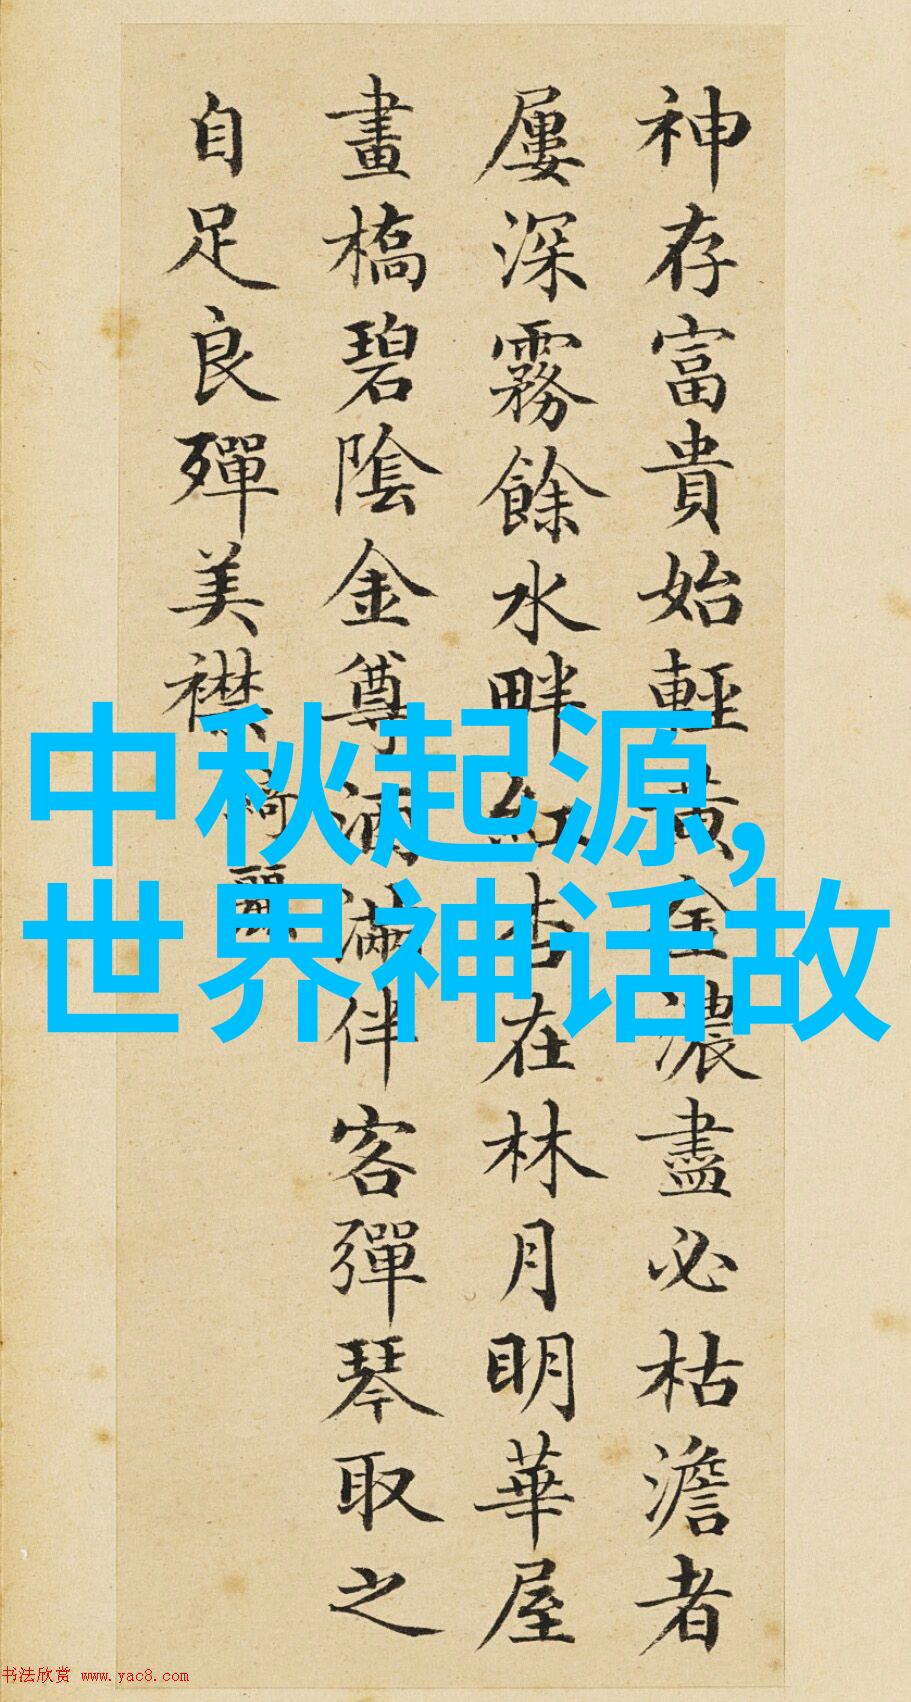 神存富貴始輕黃金濃盡必枯澹者
屢深霧餘水畔紅杏在林月明華屋
畫橋碧陰金尊酒滿伴客彈琴取之
自足良殫美襟
綺麗
中秋起源,
世界神话故
书法欣赏 www.yac8.com